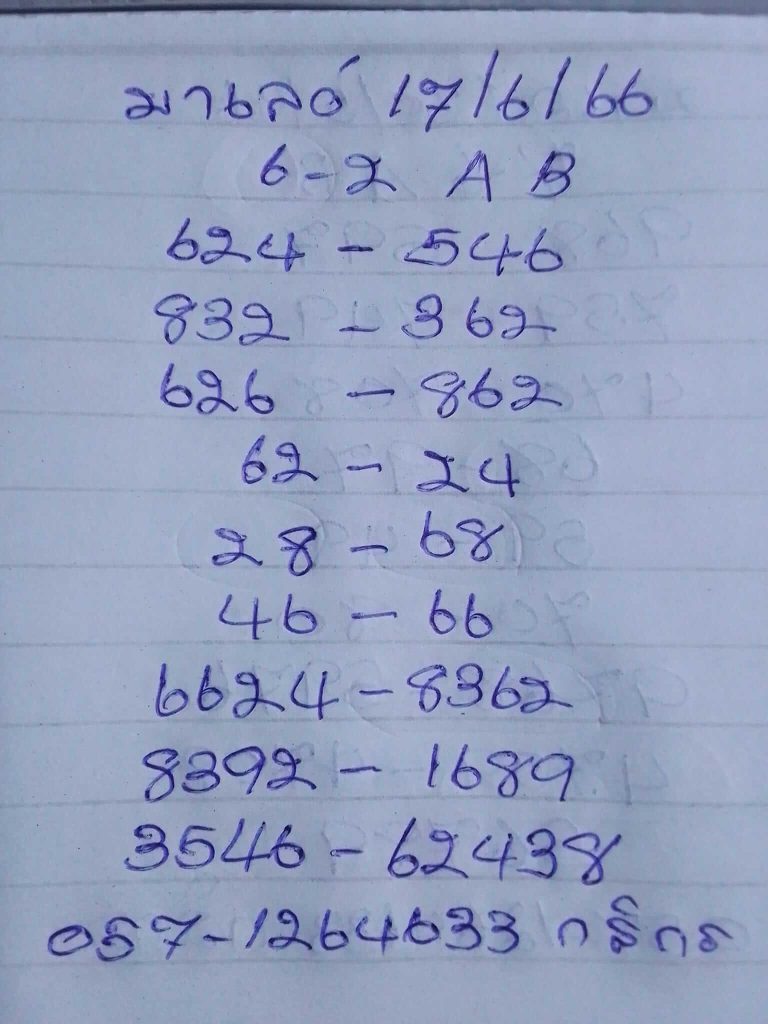 มาเลย์ 17/6/66
6-2 A B
624 - 546
832 - 362
626 - 862
62 - 24
28 - 68
46 - 66
6624 - 8362
8392 - 1689
3546 - 62438
057-1264633 กสิกร